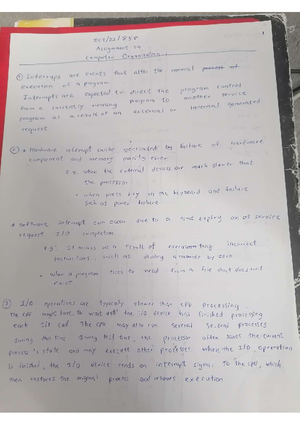 Assignment 04
Computer Organization
① Interrupts are events that alter the normal process
execution of a program
Interrupts are expected to divert the program control
from a currently running program to another service
program as a result of an external or internal generated
request
② * Hardware interrupt can be by failure of hardware
component and memory parity error
E.g. when the external device are much slower than
the processor
- when press key in the keyboard and failure
such as power failure
* Software interrupt can occur due to a time expiry on OS service
request I/O completion
e.g. It occurs as a result of encountering incorrect
instructions, such as dividing a number by zero
- When a program tries to read from a file that doesn't
exist
③ I/O operations are typically slower than CPU processing
The CPU might have to wait until the I/O device has finished processing
each The CPU may also run several processes
during this time. During that time, the processor often saves the current
process's state and may execute other processes when the I/O operation
is finished, the I/O device sends an interrupt signal to the CPU, which
then restores the original process and resumes execution